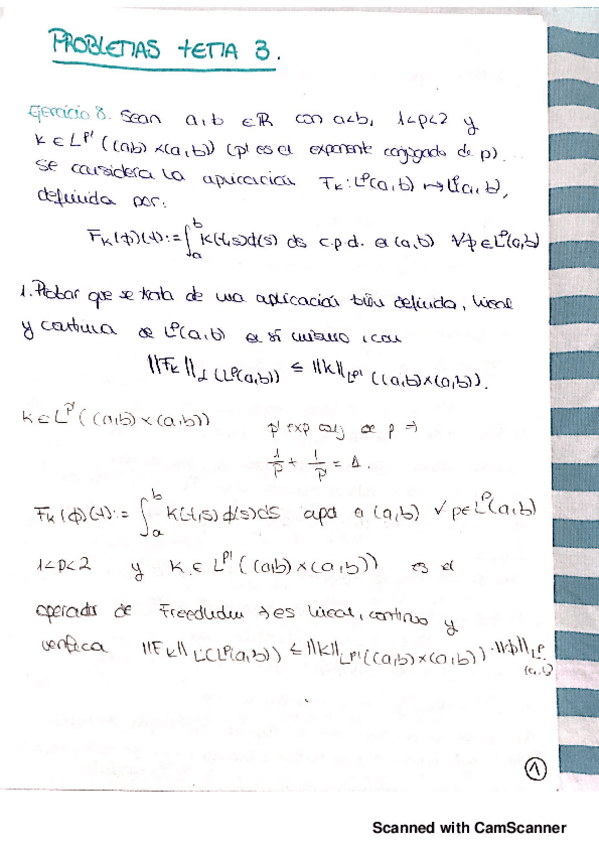 PROBLEMAS TEMA 3.
Ejercicio 8. Sean a, b ∈ ℝ con a<b, 1<p<2 y
K ∈ L^{p'} ((a,b) × (a,b)) (p' es el exponente conjugado de p).
Se considera la aplicación F_K : L^p(a,b) ↦ L^p(a,b),
definida por:
F_K(ϕ)(t) := ∫_a^b K(t,s)ϕ(s) ds c.p.d. en (a,b) ∀ϕ ∈ L^p(a,b)
1. Probar que se trata de una aplicación bien definida, lineal
y continua de L^p(a,b) en sí mismo, con
||F_K||_{L(L^p(a,b))} ≤ ||K||_{L^{p'}((a,b)×(a,b))}.
K ∈ L^{p'} ((a,b) × (a,b)) p' exp conj de p ⇒
1/p + 1/p' = 1.
F_K(ϕ)(t) := ∫_a^b K(t,s) ϕ(s) ds cpd en (a,b) ∀ϕ ∈ L^p(a,b)
1<p<2 y K ∈ L^{p'} ((a,b) × (a,b)) es el
operador de es lineal, continuo y
verifica ||F_K||_{L(L^p(a,b))} ≤ ||K||_{L^{p'}((a,b)×(a,b))} · ||ϕ||_{L^p(a,b)}
1
Scanned with CamScanner